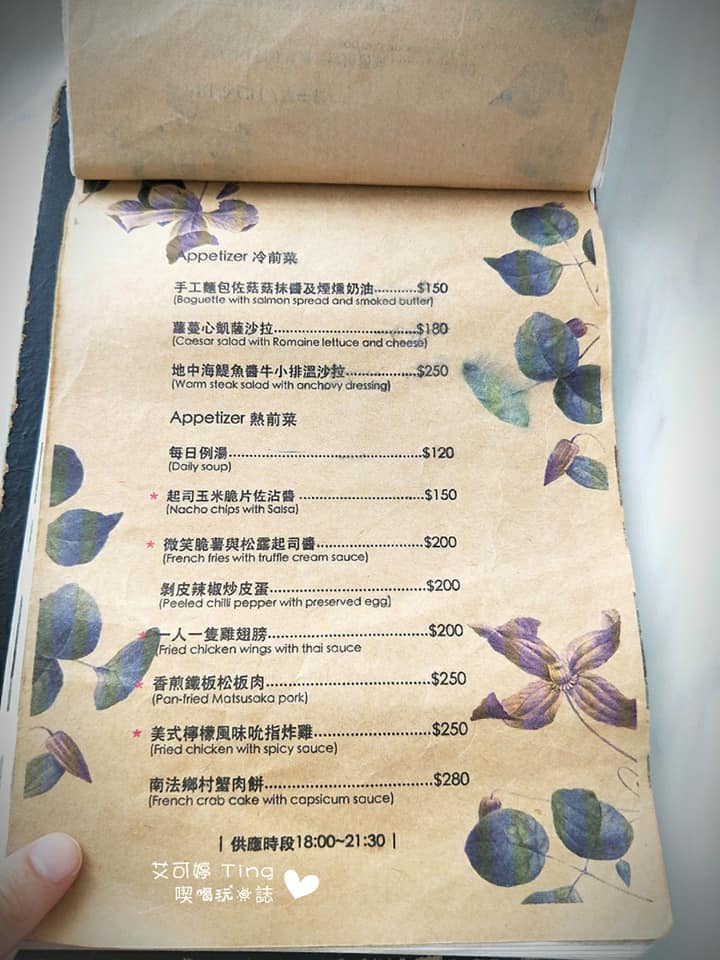 Appetizer 冷前菜
手工麵包佐菇菇抹醬及煙燻奶油...........$150
(Baguette with salmon spread and smoked butter)
蘿蔓心凱薩沙拉....................................$180
(Caesar salad with Romaine lettuce and cheese)
地中海鯷魚醬牛小排溫沙拉..................$250
(Warm steak salad with anchovy dressing)
Appetizer 熱前菜
每日例湯................................................$120
(Daily soup)
* 起司玉米脆片佐沾醬 ...............................$150
(Nacho chips with Salsa)
* 微笑脆薯與松露起司醬...........................$200
(French fries with truffle cream sauce)
剝皮辣椒炒皮蛋.......................................$200
(Peeled chilli pepper with preserved egg)
* 一人一隻雞翅膀.......................................$200
(Fried chicken wings with thai sauce
* 香煎鐵板松板肉.......................................$250
(Pan-fried Matsusaka pork)
* 美式檸檬風味吮指炸雞............................$250
(Fried chicken with spicy sauce)
南法鄉村蟹肉餅.......................................$280
(French crab cake with capsicum sauce)
| 供應時段18:00~21:30 |
艾可婷 Ting
喫喝玩樂誌